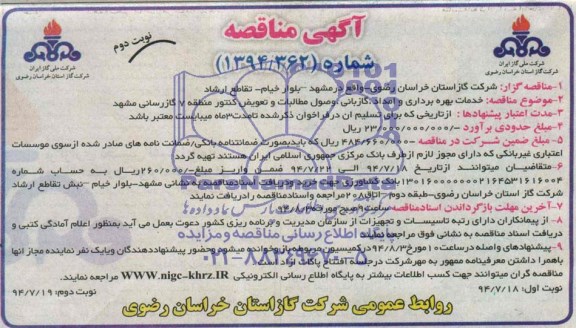 آگهی مناقصه
نوبت دوم
شماره (۱۳۹۴/۳۶۲)
شرکت ملی گاز ایران
شرکت گاز استان خراسان رضوی
شرکت ملی گاز ایران
شرکت گاز استان خراسان رضوی
۱-مناقصه گزار: شرکت گاز استان خراسان رضوی-واقع در مشهد -بلوار خیام- تقاطع ارشاد
۲-موضوع مناقصه: خدمات بهره برداری و امداد،گازبانی،وصول مطالبات و تعویض کنتور منطقه ۷ گازرسانی مشهد
۳-مدت اعتبار پیشنهادها : ازتاریخی که برای تسلیم آن درفراخوان ذکرشده تامدت۳ماه میبایست معتبر باشد
۴-مبلغ حدودی برآورد -/۲۳/۰۰۰/۰۰۰/۰۰۰ ریال
۵-مبلغ ضمین شرکت در مناقصه -/۴۸۴/۶۶۰/۰۰۰ ریال که بایدبصورت ضمانتنامه بانکی/ضمانت نامه های صادر شده ازسوی موسسات
اعتباری غیربانکی که دارای مجوز لازم ازطرف بانک مرکزی جمهوری اسلامی ایران هستند تهیه گردد
۶-متقاضیان میتوانند ازتاریخ ۹۴/۷/۱۸ الی ۹۴/۷/۲۲ ضمن واریز مبلغ-/۲۶۰/۰۰۰ریال به حساب شماره
بانک کشاورزی جهت خرید ودریافت اسنادمناقصه به نشانی مشهد-بلوار خیام -نبش تقاطع ارشاد
شرکت گاز استان خراسان رضوی-طبقه دوم-اتاق۲۰۸مراجعه واسنادمناقصه رادریافت نمایند
۷-آخرین مهلت بازگرداندن اسنادمناقصه ساعت۹صبح مورخه
۸- از پیمانکاران دارای رتبه تاسیسات و تجهیزات از سازمان مدیریت و برنامه ریزی کشور دعوت بعمل می آید بمنظور اعلام آمادگی کتبی و
دریافت اسناد مناقصه به نشانی فوق مراجعه نمایند
۹-پیشنهادهای واصله درساعت ۱۰مورخ ۹۴/۸/۳ درکمیسیون مربوطه بازوخوانده میشود وحضور پیشنهاددهندگان ویایک نفر نماینده مجاز آنها
باهمراه داشتن معرفینامه ممهور به مهرشرکت درجلسه افتتاح پاکات آزاد است
مناقصه گران میتوانند جهت کسب اطلاعات بیشتر به پایگاه اطلاع رسانی الکترونیکی WWW.nigc-khrz.IR مراجعه نمایند.
نوبت اول: ۹۴/۷/۱۸
نوبت دوم: ۹۴/۷/۱۹
روابط عمومی شرکت گاز استان خراسان رضوی
پایگاه اطلاع رسانی مناقصه و مزایده
۰۲۱-۸۸۳۴۹۶۷۰-۵